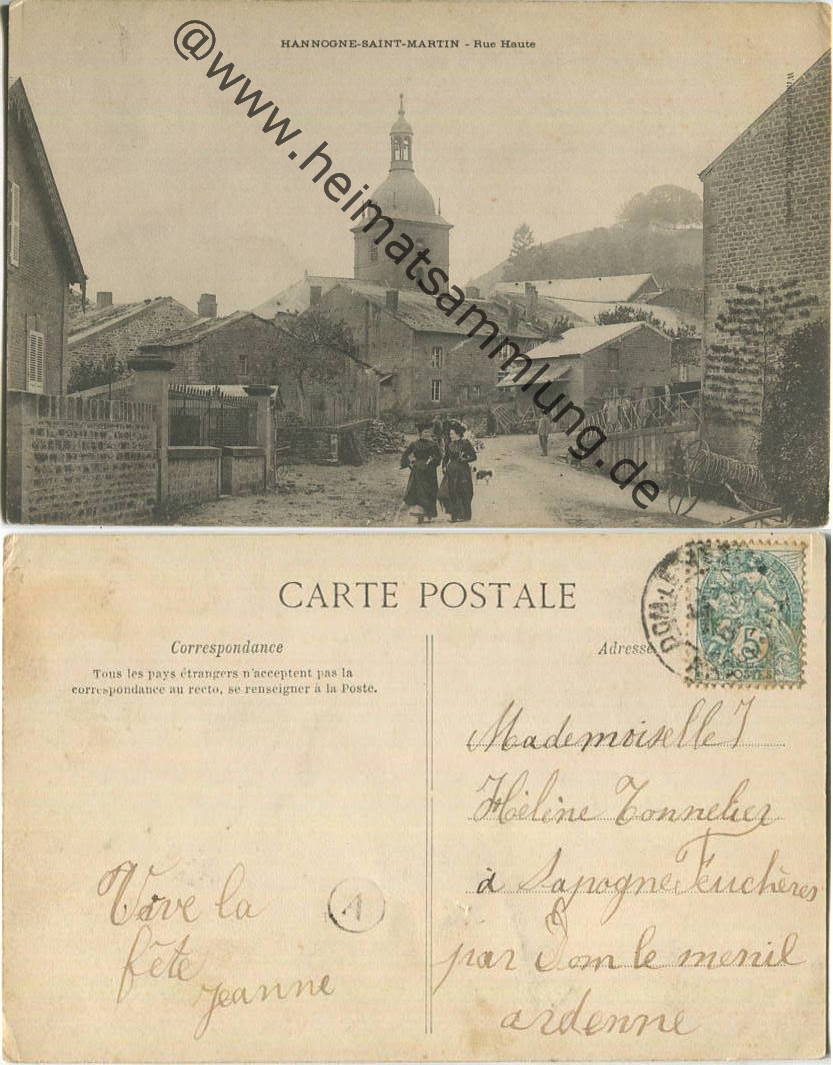 HANNOGNE-SAINT-MARTIN - Rue Haute
@www.heimatsammlung.de
CARTE POSTALE
Correspondance
Tous les pays étrangers n'acceptent pas la
correspondance au recto, se renseigner à la Poste.
Vive la
fête
Jeanne
1
Adresse
DOM-LE-
5
POSTES
Mademoiselle J
Hélène Tonnelier
à Sapogne Feuchères
par Dom le menil
ardenne